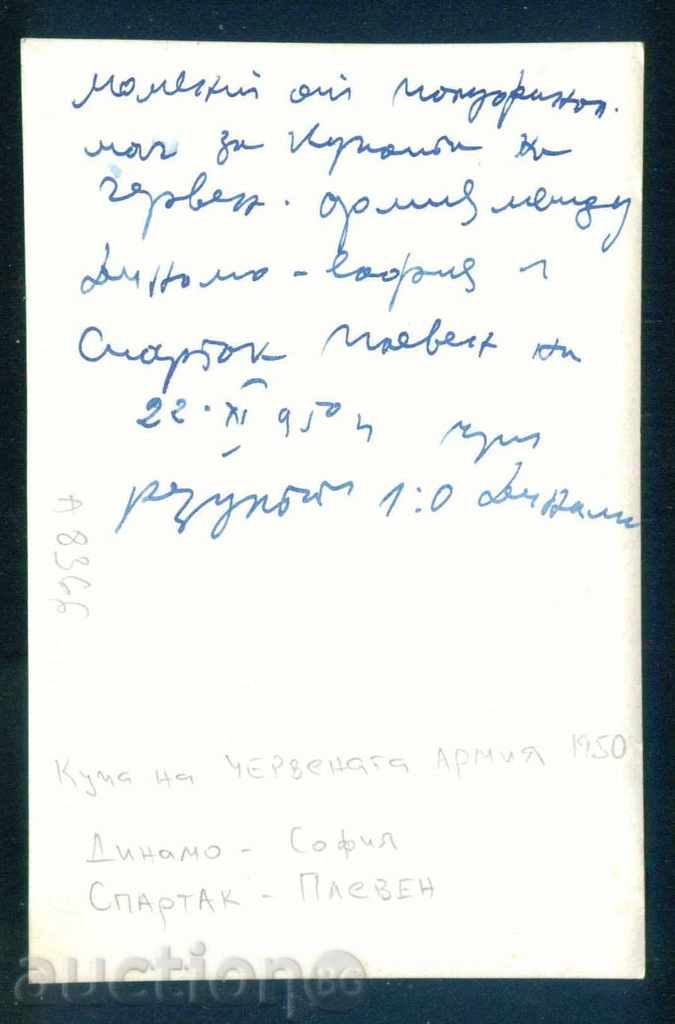 момент от полуфинал.
мач за Купата на
червен. армия между
Динамо - София и
Спартак Плевен на
22. XI 950 г
резултат 1:0 Динамо
А 8366
Купа на ЧЕРВЕНАТА АРМИЯ 1950
Динамо - София
СПАРТАК - ПЛЕВЕН
Auction.BG